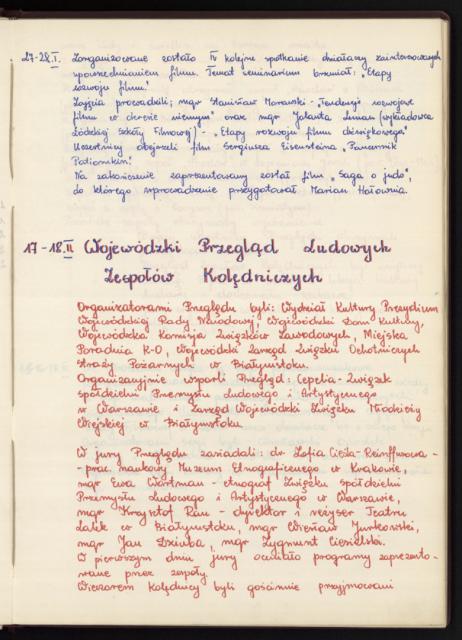 27-28.I. Zorganizowane zostało IV kolejne spotkanie działaczy zainteresowanych
upowszechnianiem filmu. Temat seminarium brzmiał: „Etapy
rozwoju filmu."
Zajęcia prowadzili: mgr Stanisław Morawski - „Tendencje rozwojowe
filmu w okresie niemym" oraz mgr Jolanta Leman (wykładowca
Łódzkiej Szkoły Filmowej) - „Etapy rozwoju filmu dźwiękowego."
Uczestnicy obejrzeli film Sergiusza Eisensteina „Pancernik
Potiomkin."
Na zakończenie zaprezentowany został film „Saga o judo",
do którego wprowadzenie przygotował Marian Hołownia.
17-18.II Wojewódzki Przegląd Ludowych
Zespołów Kolędniczych
Organizatorami Przeglądu byli: Wydział Kultury Prezydium
Wojewódzkiej Rady Narodowej, Wojewódzki Dom Kultury,
Wojewódzka Komisja Związków Zawodowych, Miejska
Poradnia K-O, Wojewódzki Zarząd Związku Ochotniczych
Straży Pożarnych w Białymstoku.
Organizacyjnie wsparli Przegląd: Cepelia - Związek
Spółdzielni Przemysłu Ludowego i Artystycznego
w Warszawie i Zarząd Wojewódzki Związku Młodzieży
Wiejskiej w Białymstoku
W jury Przeglądu zasiadali: dr Zofia Cieśla-Reinffusowa -
- prac. naukowy Muzeum Etnograficznego w Krakowie,
mgr Ewa Wartman - etnograf Związku Spółdzielni
Przemysłu Ludowego i Artystycznego w Warszawie,
mgr Krzysztof Rau - dyrektor i reżyser Teatru
Lalek w Białymstoku, mgr Wiesław Jurkowski,
mgr Jan Dziuba, mgr Zygmunt Ciesielski.
W pierwszym dniu jury oceniało programy zaprezento-
wane przez zespoły.
Wieczorem kolędnicy byli gościnnie przyjmowani